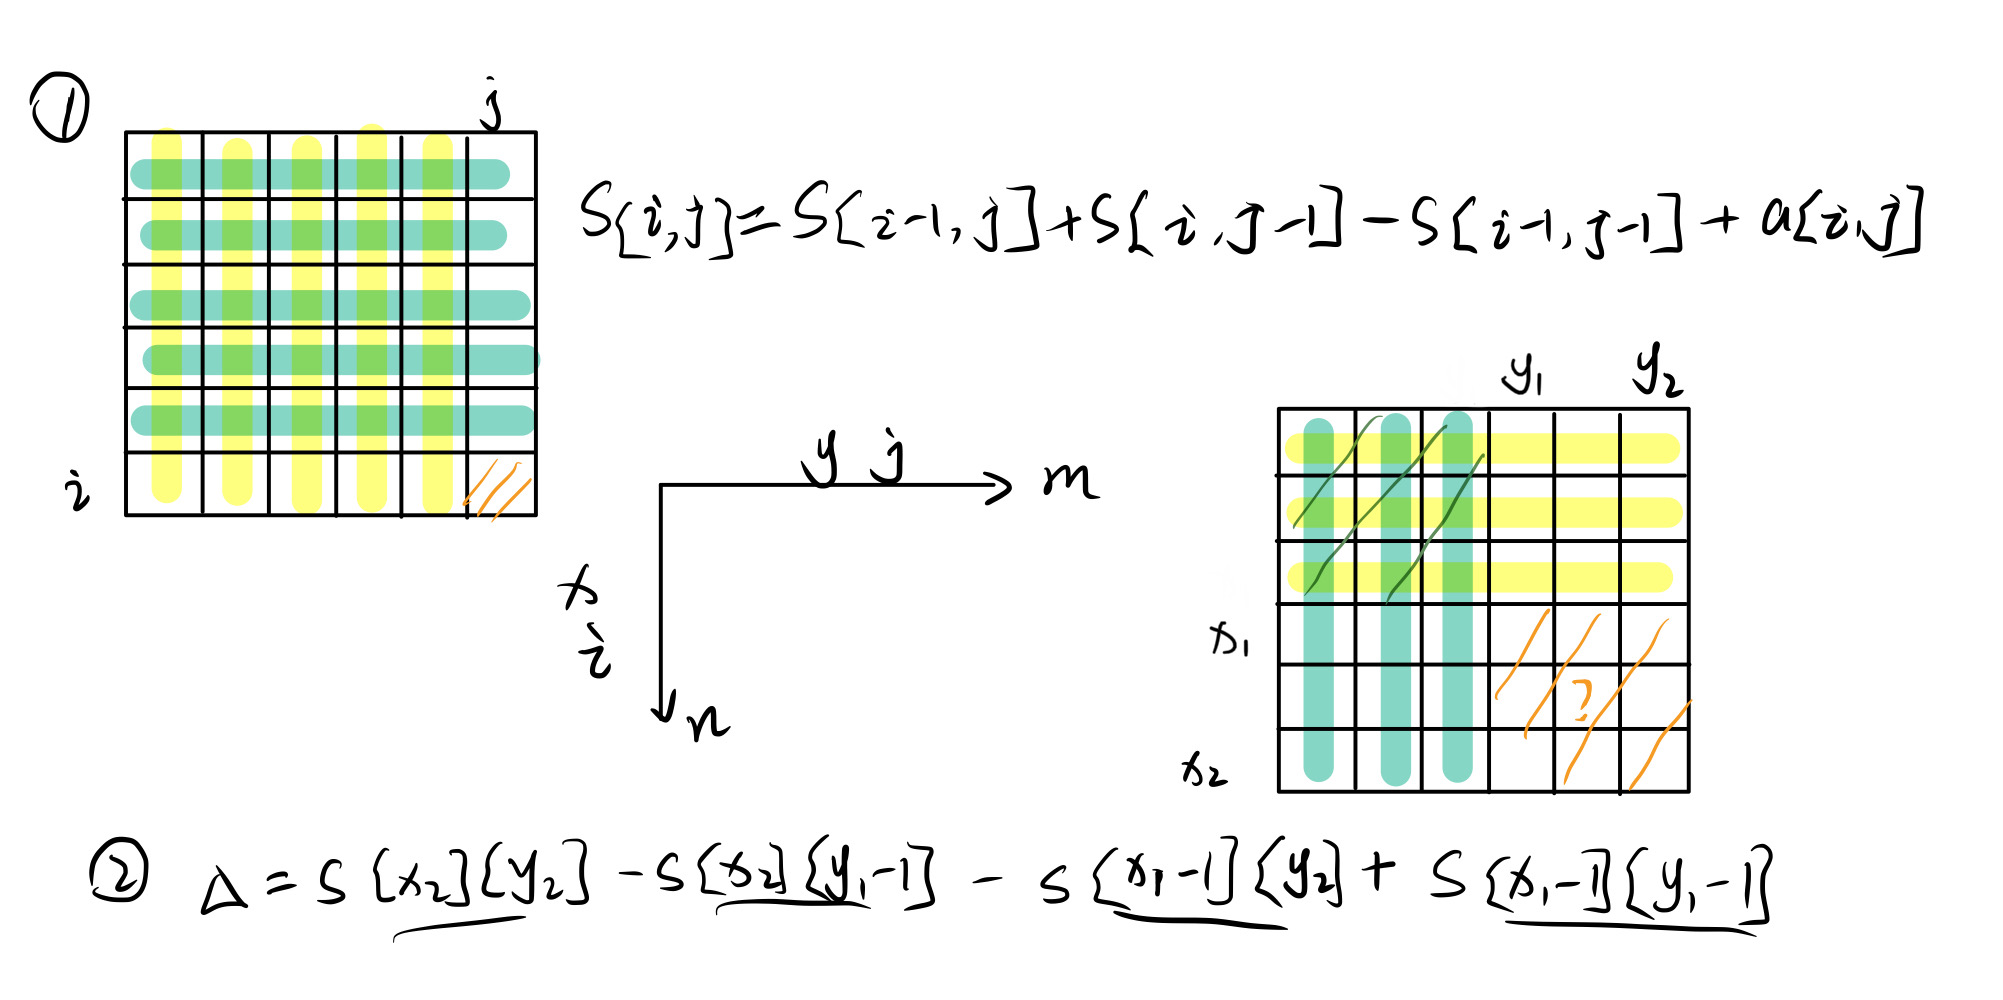 ① j
S[i,j]=S[i-1,j]+S[i,j-1]-S[i-1,j-1]+a[i,j]
i
y j m
x
i
n
y₁ y₂
x₁
?
x₂
② Δ=S[x₂][y₂]-S[x₂][y₁-1]-S[x₁-1][y₂]+S[x₁-1][y₁-1]